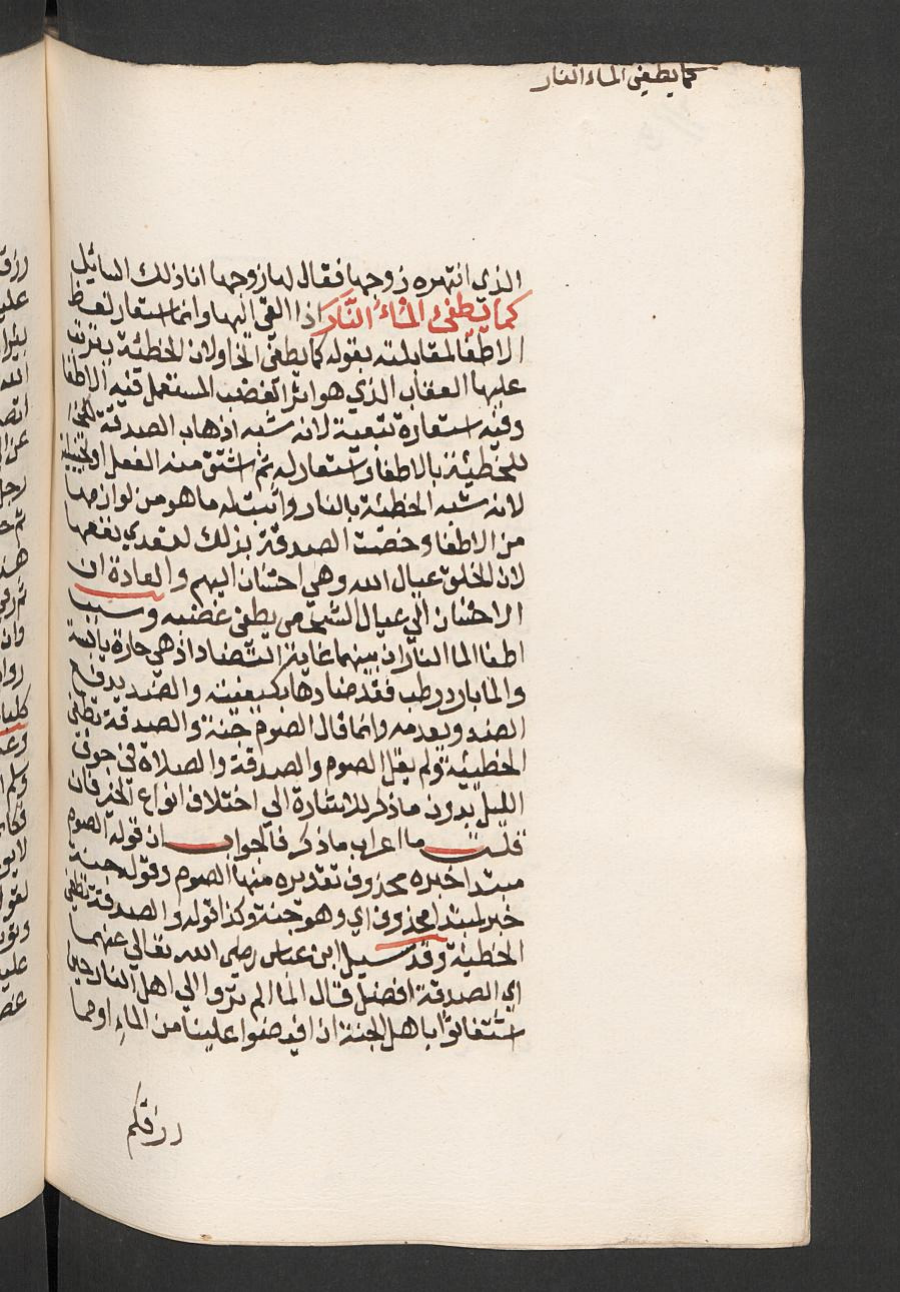 كما يطفئ الماء النار
الذي انتهره زوجها فقال لها زوجها انا ذلك السائل
كما يُطفئُ المْاءُ النَّارَ اذا القي اليها وانما استعار لفظ
الاطفا لمقابلته بقوله كما يطفئ الخ اولان الخطئة يترتب
عليها العقاب الذي هو اثر الغضب المستعمل فيه الاطفا
وفيه استعارة تبعية لانه شبه اذهاب الصدقة
للخطيئة بالاطفا واستعار له ثم اشتق منه الفعل او
لانه شبه الخطئة بالنار واثبت له ما هو من لوازمها
من الاطفا وخصت الصدقة بذلك لتعدي نفعها
لان الخلق عيال الله وهي احسان اليهم والعادة ان
الاحسان الي عيال الشخص يطفي غضبه وسبب
اطفا الما النار ان بينهما غاية التضاد اذ هي حارة يابسة
والما بارد رطب فقد ضادها بكيفيته والضد يدفع
الضد ويعدمه وانما قال الصوم جنة والصدقة تطفي
الخطيئة ولم يقل الصوم والصدقة والصلاة في جوف
الليل بدون ما ذكر للاشارة الي اختلاف انواع الخير فان
قلت ما اعراب ما ذكر فالجواب ان قوله الصوم
مبتدا خبره محذوف تقديره منها الصوم وقوله جنة
خبر لمبتدا محذوف اي وهو جنة وكذا قوله والصدقة تطفي
الخطيئة وقد سيل ابن عباس رضي الله تعالي عنهما
اي الصدقة افضل قال الما الم تروا الي اهل النار حين
استغاثوا باهل الجنة ان افيضوا علينا من الماء او مما
رزقكم